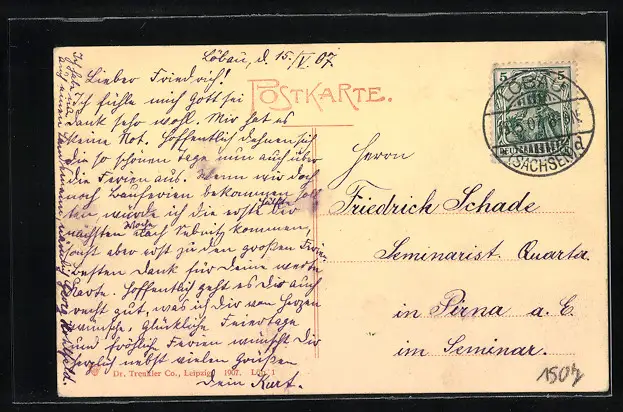 Löbau, d. 15./V. 07.
Lieber Friedrich!
Ich fühle mich Gott sei
Dank sehr wohl. Mir hat es
keine Not. Hoffentlich dehnen sich
die so schönen Tage nun auch über
die Ferien aus. Wenn wir doch
noch Lauferien bekommen soll
ten, würde ich die erste Hälfte der
nächsten Woche nach Sebnitz kommen,
sonst aber erst zu den großen Ferien.
Besten Dank für deine werte
Karte. Hoffentlich geht es Dir auch
recht gut, was ich dir von Herzen
wünsche. Glückliche Feiertage
und fröhliche Ferien wünscht Dir
herzlich nebst vielen Grüßen
Dein Kurt.
POSTKARTE.
Herrn
Friedrich Schade
Seminarist. Quarta
in Pirna a. E.
im Seminar.
5 5
LÖBAU
(SACHSEN) d
Dr. Trenkler Co., Leipzig. 1907. Löb. 1